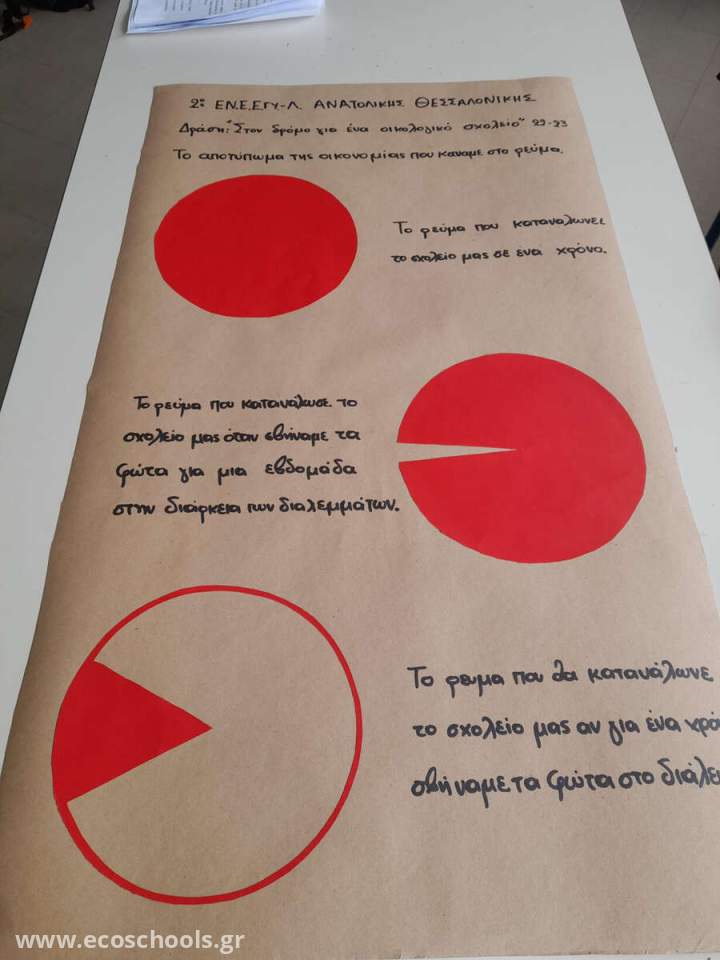 2ο ΕΝ.Ε.ΕΓΥ-Λ. ΑΝΑΤΟΛΙΚΗΣ ΘΕΣΣΑΛΟΝΙΚΗΣ
Δράση: "Στον δρόμο για ένα οικολογικό σχολείο" 22-23
Το αποτύπωμα της οικονομίας που καναμε στο ρεύμα.
Το ρεύμα που καταναλωνει
το σχολείο μας σε ενα χρόνο.
Το ρεύμα που κατανάλωσε το
σχολείο μας όταν σβήναμε τα
φώτα για μια εβδομάδα
στην διάρκεια των διαλεμμάτων.
Το ρευμα που θα κατανάλωνε
το σχολείο μας αν για ένα χρό
σβήναμε τα φώτα στο διάλε
www.ecoschools.gr